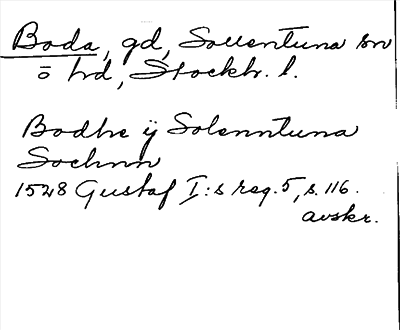 Boda, gd, Sollentuna sn
o hd, Stockh. l.
Bodhe ÿ Solenntuna
Sochnn
1528 Gustaf I:s reg. 5, s. 116.
avskr.